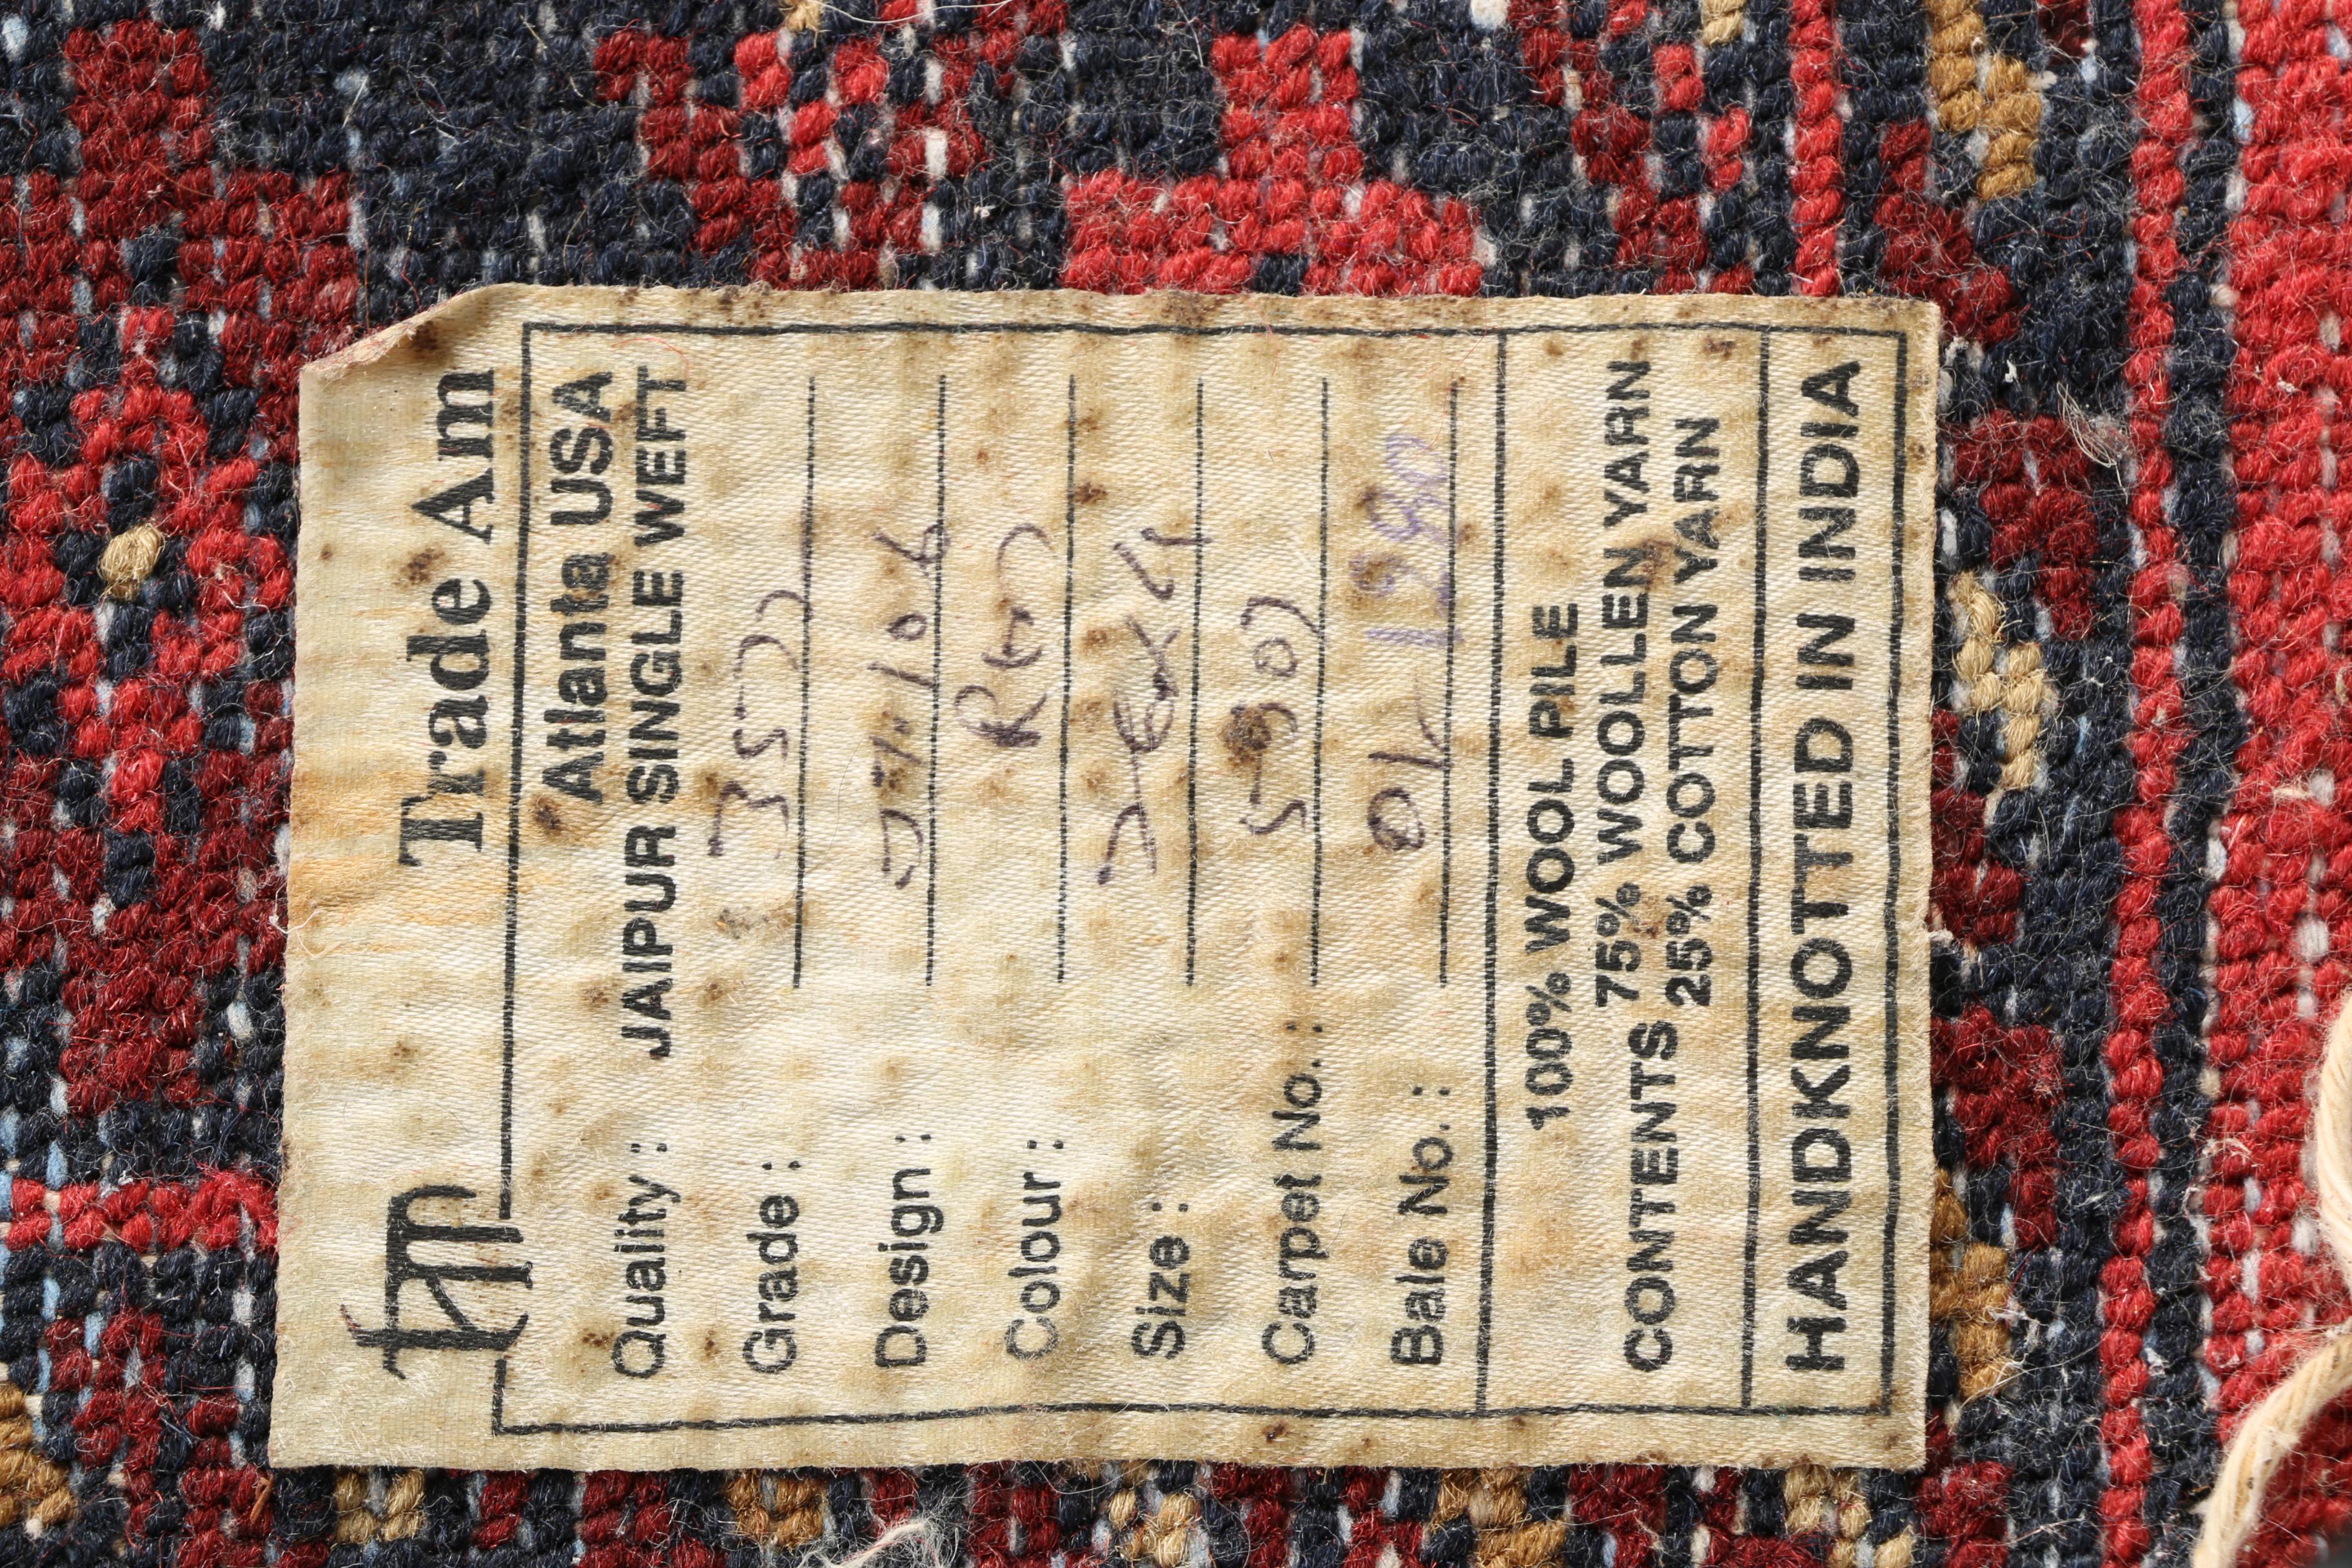 Trade Am
Atlanta USA
Quality : JAIPUR SINGLE WEFT
Grade :
Design :
Colour :
Size :
Carpet No. :
Bale No. : OK 1390
100% WOOL PILE
CONTENTS 75% WOOLLEN YARN
25% COTTON YARN
HANDKNOTTED IN INDIA